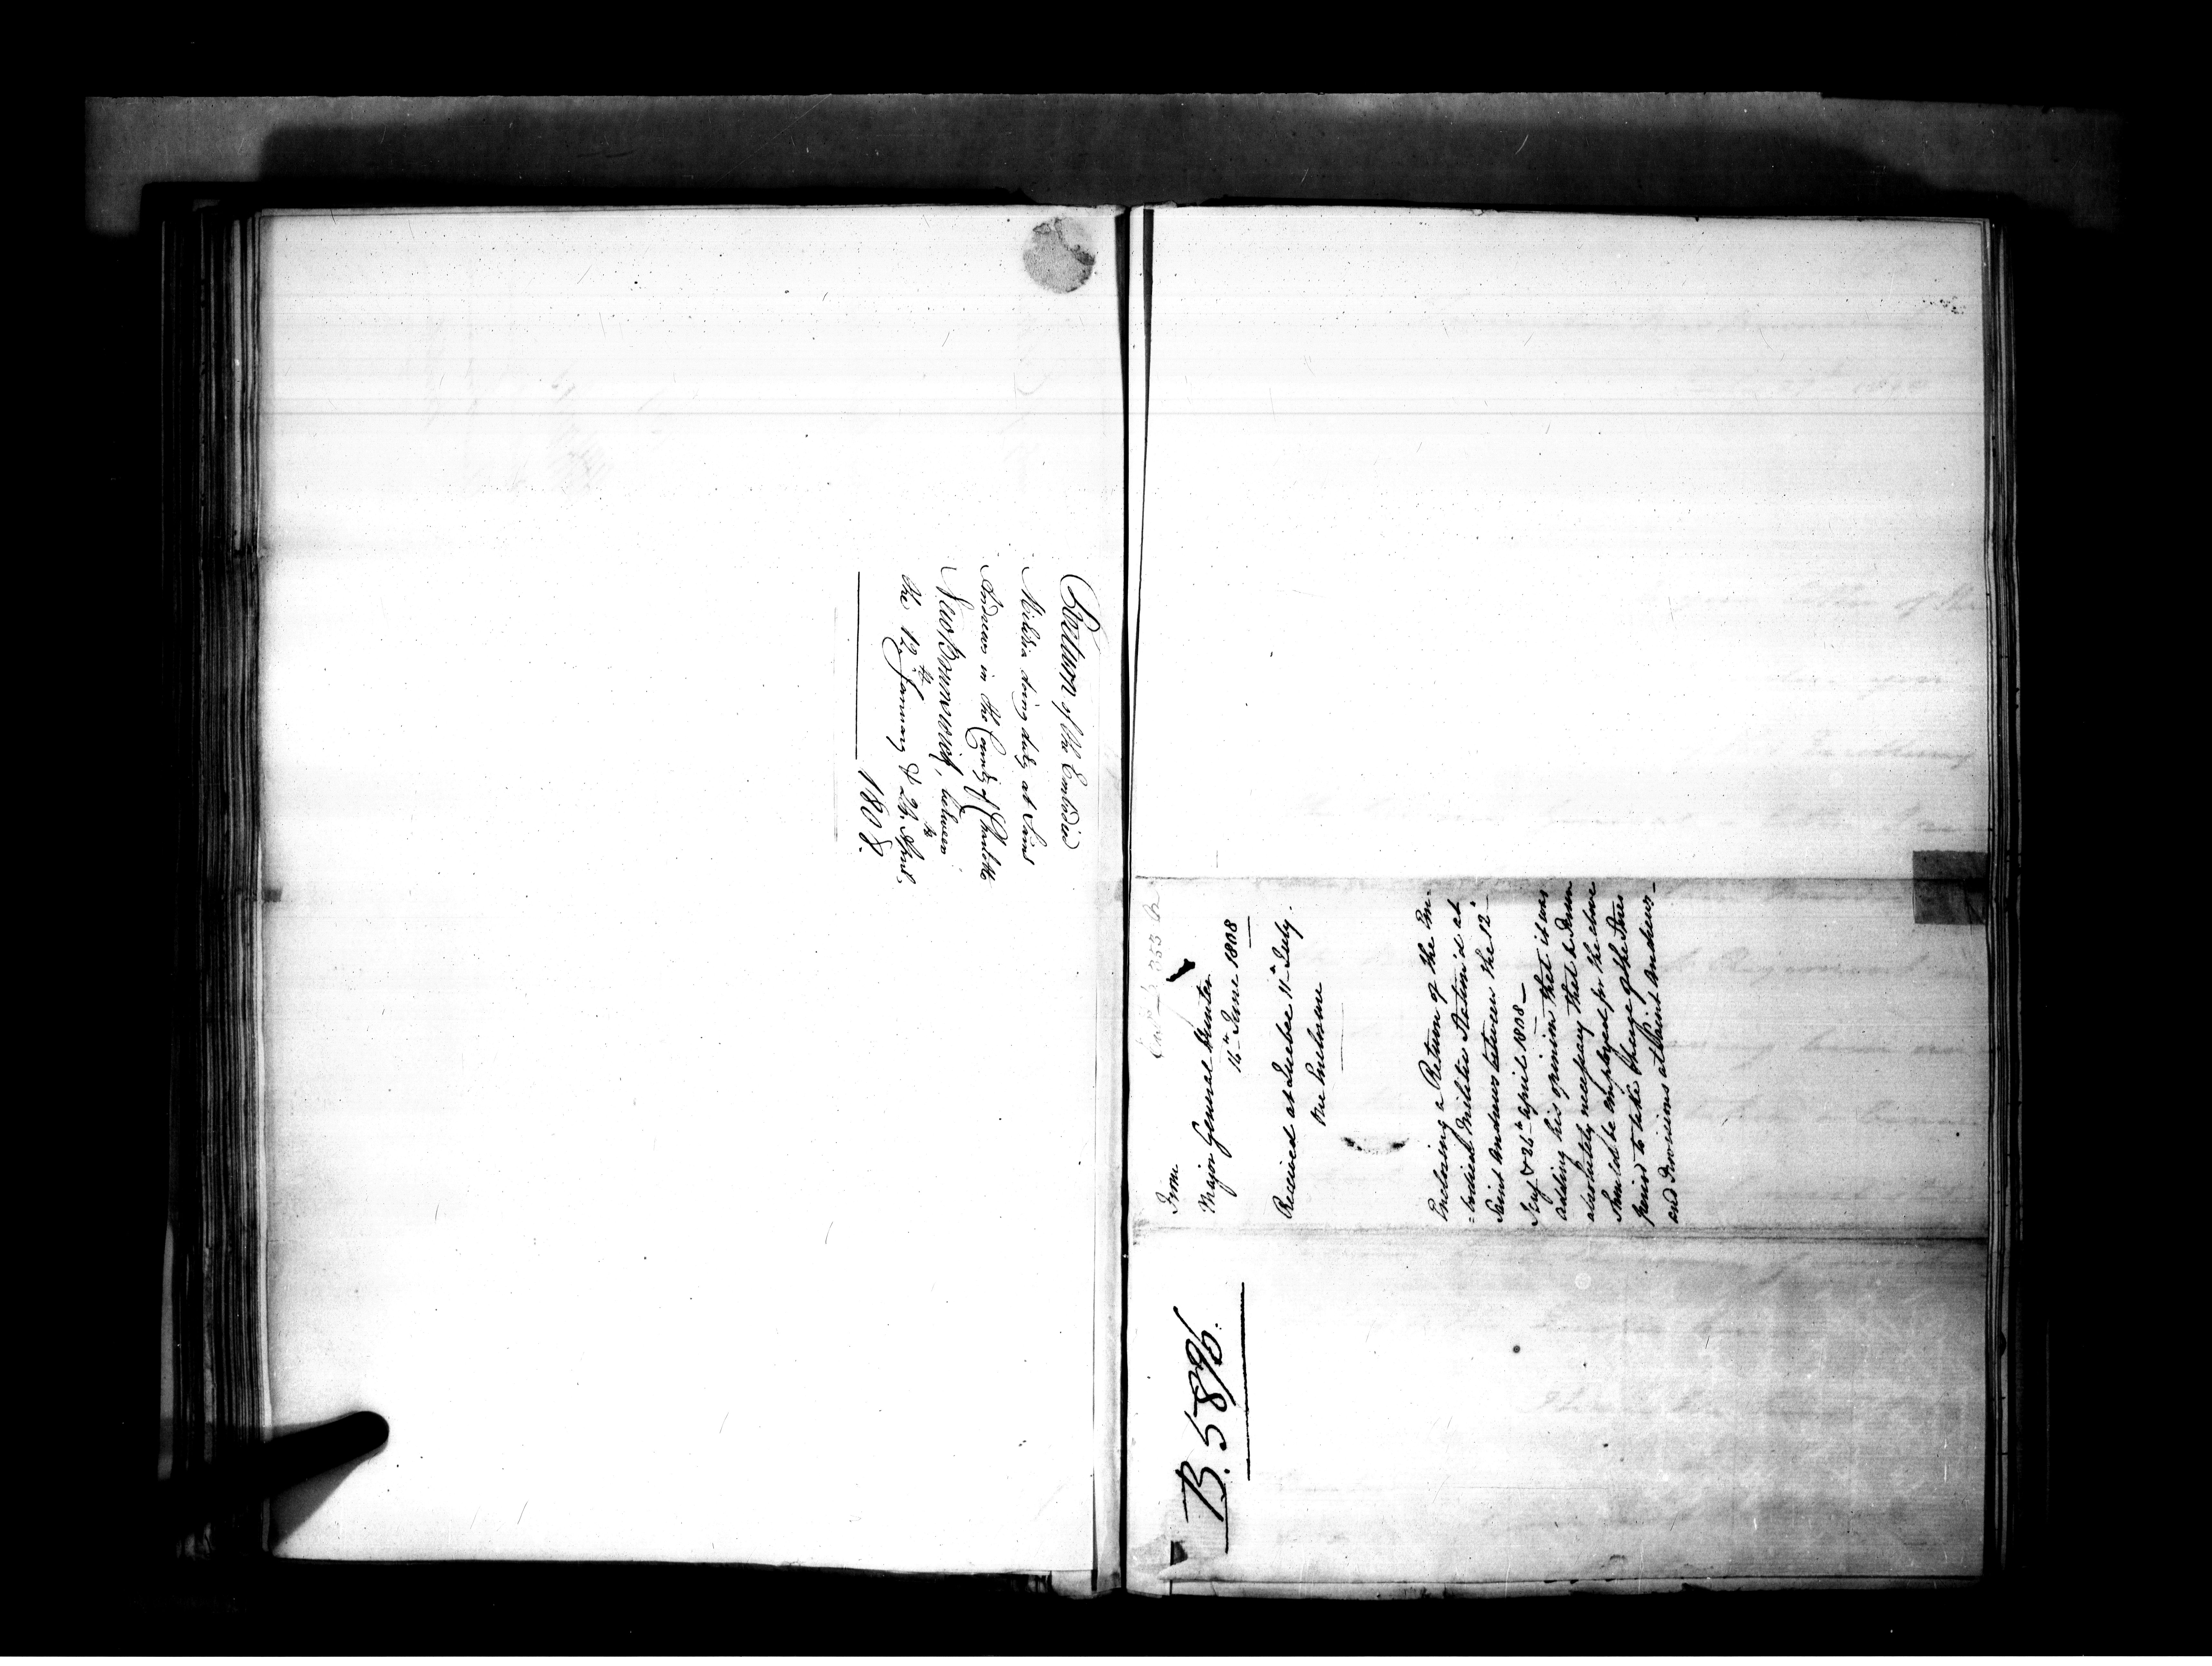 Return of the Embodied
Militia doing duty at Saint
Andrews in the County of Charlotte
New Brunswick, between
the 12th January & 24th April,
1808.
From
Major General Hunter
16th June 1808
Received at Quebec 11th July.
One Inclosure
Enclosing a Return of the Em-
=bodied Militia Station'd at
Saint Andrews between the 12th
Jany & 24th April 1808 —
adding his opinion that it was
absolutely necessary that
should be employed for the above
period to take Charge of the
and Provisions at Saint Andrews —
B. 5896.